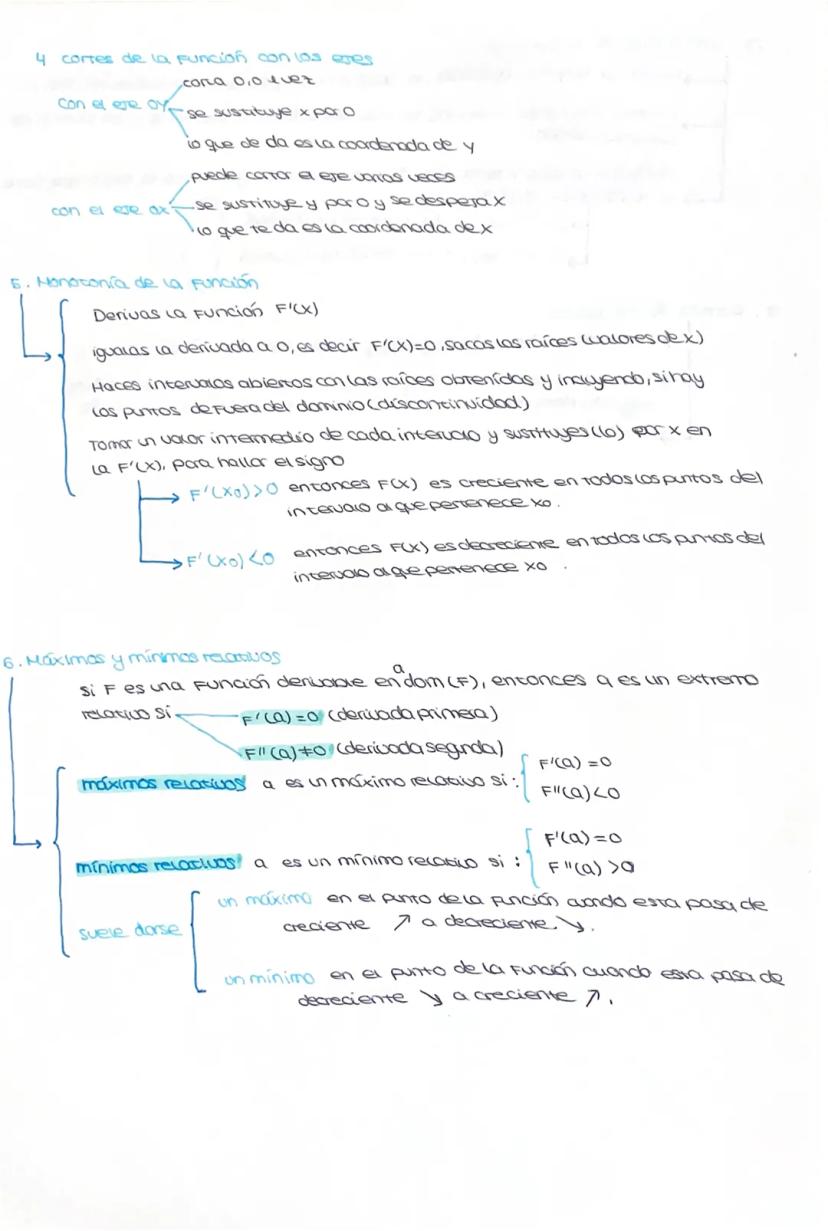 4 cortes de la función con los ejes
corta 0, 0 1 vez
con el eje OY
se sustituye x por 0
lo que de da es la coordenada de y
puede cortar el eje varias veces
con el eje OX
se sustituye y por 0 y se despeja x
lo que te da es la coordenada de x
5. Monotonía de la función
Derivas la función F'(x)
igualas la derivada a 0, es decir F'(x)=0, sacas las raíces (valores de x)
Haces intervalos abiertos con las raíces obtenidas y incluyendo, si hay
los puntos de fuera del dominio (discontinuidad)
Tomar un valor intermedio de cada intervalo y sustituyes (lo) por x en
la F'(x), para hallar el signo
F'(x0)>0 entonces F(x) es creciente en todos los puntos del
intervalo al que pertenece x0.
F'(x0)<0 entonces F(x) es decreciente en todos los puntos del
intervalo al que pertenece x0.
6. Máximos y mínimos relativos
si F es una función derivable en a dom(F), entonces a es un extremo
relativo si
F'(a)=0 (derivada primera)
F''(a)≠0 (derivada segnda)
máximos relativos a es un máximo relativo si:
F'(a)=0
F''(a)<0
mínimos relativos a es un mínimo relativo si:
F'(a)=0
F''(a)>0
suele darse
un máximo en el punto de la función cuando esta pasa de
creciente ↗ a decreciente ↘.
un mínimo en el punto de la función cuando esta pasa de
decreciente ↘ a creciente ↗.